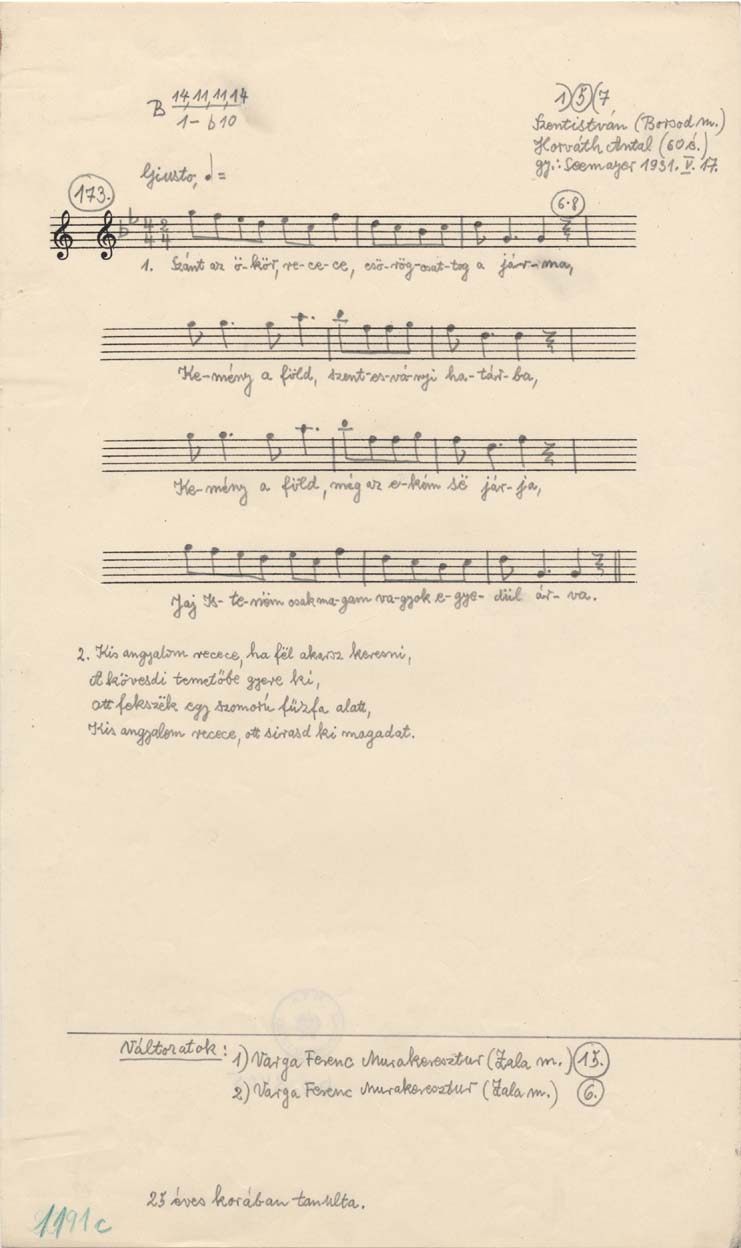 B 14,11,11,14
1- b10
1) 5 (7
Szentistván (Borsod m.)
Horváth Antal (60 é.)
gy.: Seemayer 1931. V. 17.
Giusto, ♩=
173.
6-8
4 2
4 4
1. Szánt az ö-kör, re-ce-ce, csö-rög-csat-tog a jár-ma,
Ke-mény a föld, szent-es-vá-nyi ha-tár-ba,
Ke-mény a föld, még az e-kém së jár-ja,
Jaj Is-te-nëm csak ma-gam va-gyok e-gye-dül ár-va.
2. Kis angyalom recece, ha fël akarsz keresni,
A kövesdi temetőbe gyere ki,
ott fekszëk egy szomorú fűzfa alatt,
Kis angyalom recece, ott sirasd ki magadat.
Változatok: 1) Varga Ferenc Murakeresztur (Zala m.) 15.
2) Varga Ferenc Murakeresztur (Zala m.) 6.
25 éves korában tanulta.
1191c